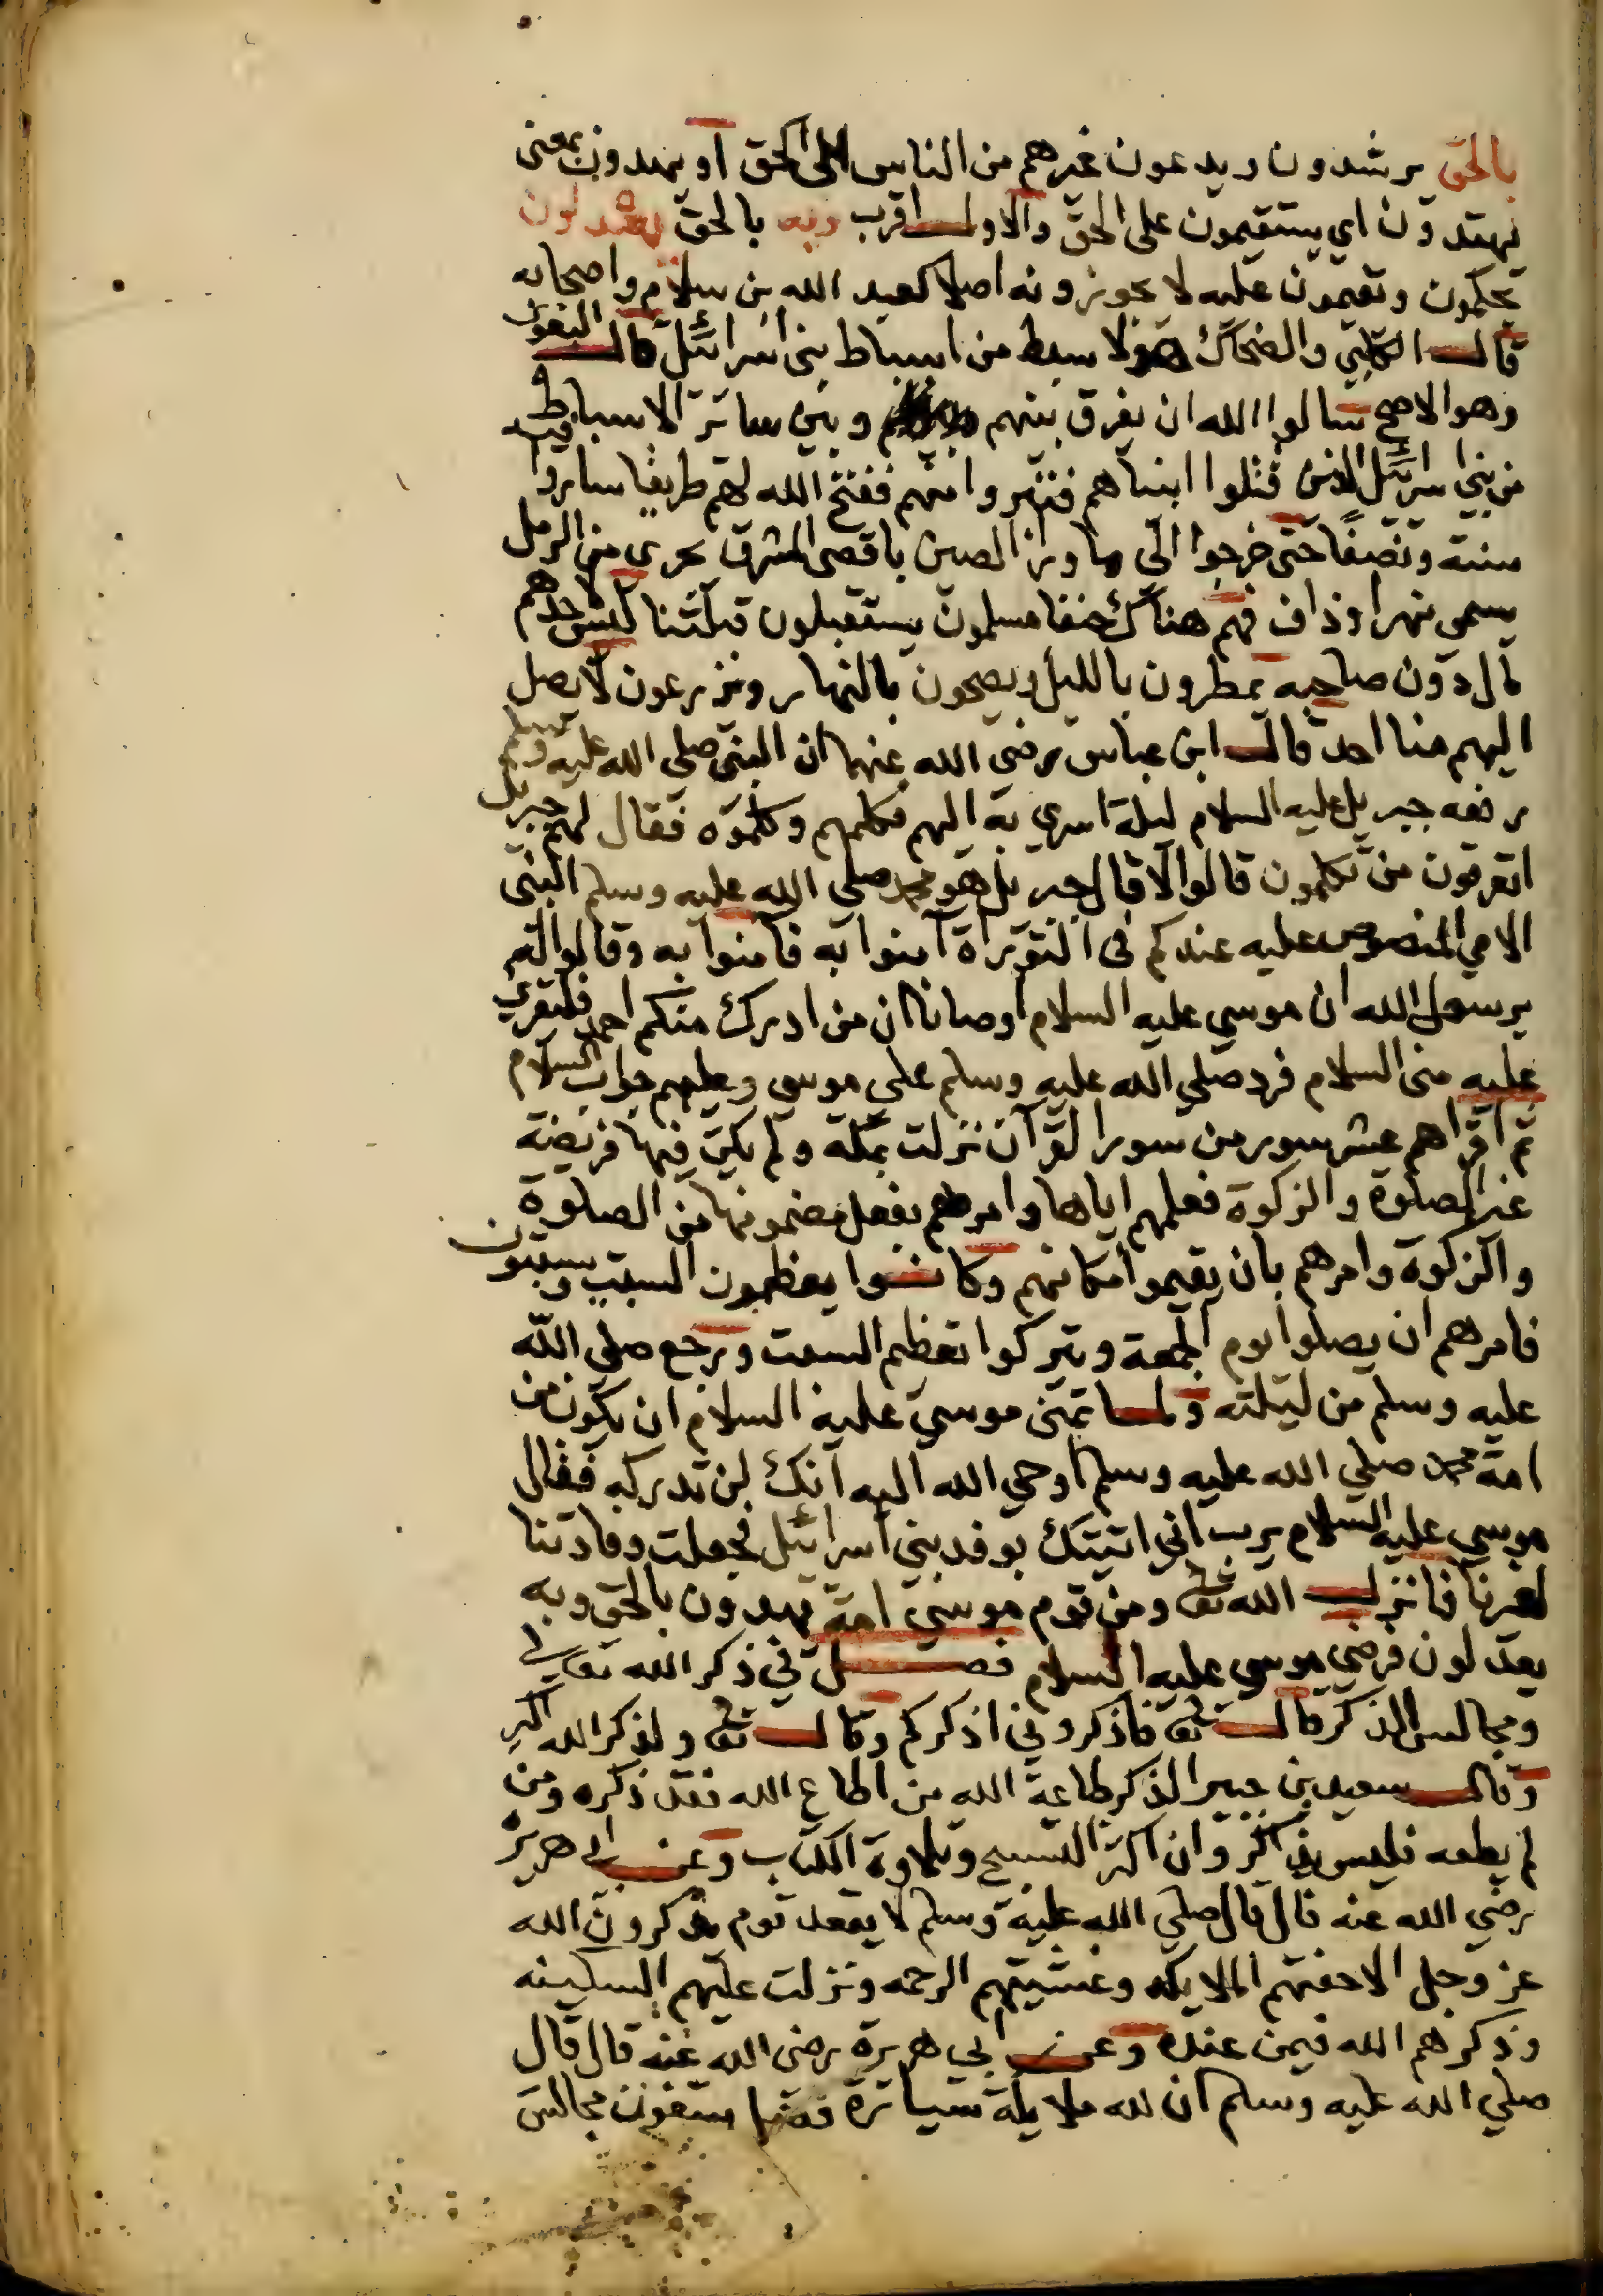 بالحق يرشدون ويدعون غيرهم من الناس الى الحق او يهدون بمعنى
يهتدون اي يستقيمون على الحق والاول اقرب وبه بالحق يعدلون
يحكمون وتقيمون عليه لا يجوزونه اصلا كعبد الله بن سلام واصحابه
قال الكلبي والضحاك هولا سبط من اسباط بنى اسرائيل قال البغوي
وهو الاصح سالوا الله ان يفرق بينهم وبين سائر الاسباط
من بني اسرائيل الذين قتلوا ابنياهم فتبروا منهم ففتح الله لهم طريقا ساروا فيه
سنة ونصفًا حتى خرجوا الى ما ورا الصين باقصى المشرق بحرى من الرمل
يسمى نهر اوذاف فهم هناك حنفا مسلمون يستقبلون قبلتنا ليس لاحدهم
مال دون صاحبه يمطرون بالليل ويصحون بالنهار ويزرعون لا يصل
اليهم منا احد قال ابن عباس رضي الله عنهما ان النبي صلى الله عليه وسلم
رفعه جبريل عليه السلام ليلة اسري به اليهم فكلمهم وكلموه فقال لهم جبريل
اتعرفون من تكلمون قالوا لا قال جبريل هو محمد صلى الله عليه وسلم النبى
الامي المنصوص عليه عندكم في التوراة آمنوا به فامنوا به وقالوا له
يرسول الله ان موسي عليه السلام اوصانا ان من ادرك منكم احمد فليقرئ
عليه منى السلام فرد صلي الله عليه وسلم على موسي وعليهم جواب السلام
ثم اقراهم عشر سور من سور القرآن نزلت بمكة ولم يكن فيها فريضة
غير الصلوة والزكوة فعلمهم اياها وامرهم بفعل مضمونها من الصلوة
والزكوة وامرهم بان يقيموا مكانهم وكانوا يعظمون السبت ويسبتون
فامرهم ان يصلوا يوم الجمعة ويتركوا تعظيم السبت ورجع صلي الله
عليه وسلم من ليلته ولما تمنى موسي عليه السلام ان يكون من
امة محمد صلي الله عليه وسلم اوحي الله اليه انك لن تدركه فقال
موسي عليه السلام يرب انى اتيتك بوفد بني اسرائيل فجعلت وفادتنا
لغيرنا فانزل الله تعا ومن قوم موسي امة يهدون بالحق وبه
يعدلون فرضي موسي عليه السلام فصل في ذكر الله تعالى
ومجالس الذكر قال تعا فاذكروني اذكركم وقال تعا ولذكر الله اكبر
وقال سعيد بن جبير الذكر طاعة الله من اطاع الله فقد ذكره ومن
لم يطعه فليس بذاكر وان اكثر التسبيح وتلاوة الكتاب وعن ابي هريرة
رضي الله عنه قال قال صلي الله عليه وسلم لا يقعد قوم يذكرون الله
عز وجل الا حفتهم الملايكه وغشيتهم الرحمه ونزلت عليهم السكينه
وذكرهم الله فيمن عنده وعن ابي هريرة رضى الله عنه قال قال
صلي الله عليه وسلم ان لله ملايكة سيارة فضلا يبتغون مجالس